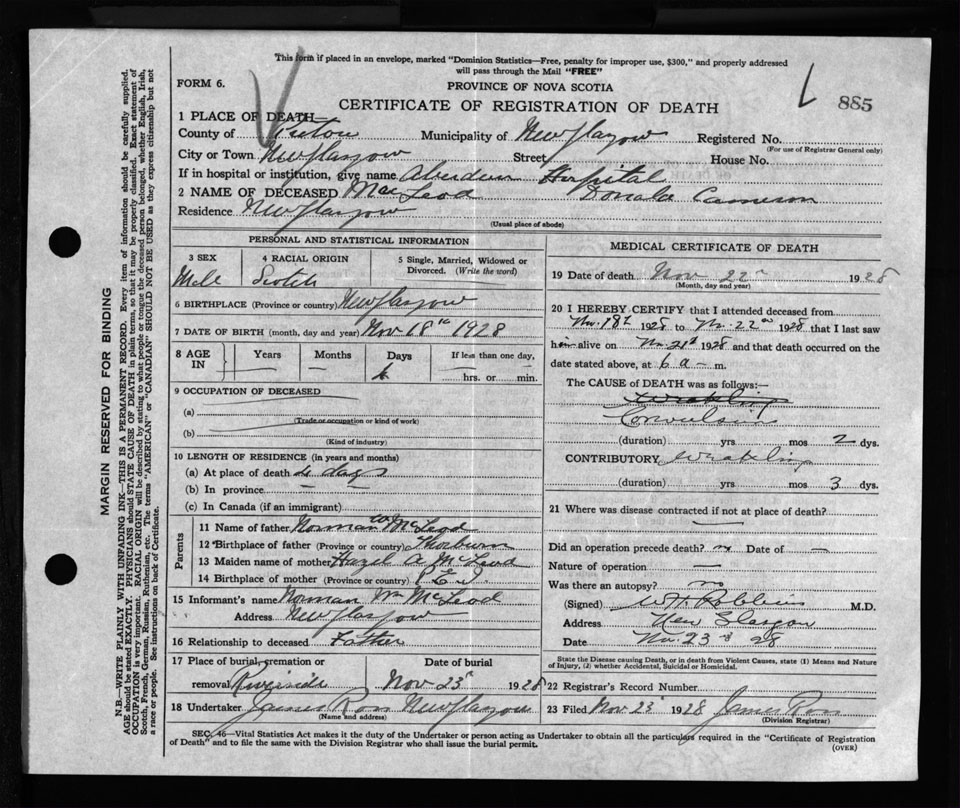 This form if placed in an envelope, marked "Dominion Statistics—Free, penalty for improper use, $300," and properly addressed
will pass through the Mail "FREE"
FORM 6.
PROVINCE OF NOVA SCOTIA
CERTIFICATE OF REGISTRATION OF DEATH
885
1 PLACE OF DEATH—
County of Pictou Municipality of New Glasgow Registered No.
(For use of Registrar General only)
City or Town New Glasgow Street House No.
If in hospital or institution, give name Aberdeen Hospital
2 NAME OF DECEASED MacLeod Donald Cameron
Residence New Glasgow
(Usual place of abode)
PERSONAL AND STATISTICAL INFORMATION
3 SEX 4 RACIAL ORIGIN 5 Single, Married, Widowed or
Divorced. (Write the word)
Male Scotch
6 BIRTHPLACE (Province or country) New Glasgow
7 DATE OF BIRTH (month, day and year) Nov 18th 1928
8 AGE IN Years Months Days If less than one day,
— — hrs. or min.
9 OCCUPATION OF DECEASED
(a)
(Trade or occupation or kind of work)
(b)
(Kind of industry)
10 LENGTH OF RESIDENCE (in years and months)
(a) At place of death 4 days
(b) In province — —
(c) In Canada (if an immigrant)
Parents
11 Name of father Norman W McLeod
12 Birthplace of father (Province or country) Thorburn
13 Maiden name of mother Hazel A McLeod
14 Birthplace of mother (Province or country) P E I.
15 Informant's name Norman Wm McLeod
Address New Glasgow
16 Relationship to deceased Father
17 Place of burial, cremation or Date of burial
removal Riverside Nov 23d 1928
18 Undertaker James Ross New Glasgow
(Name and address)
MEDICAL CERTIFICATE OF DEATH
19 Date of death Nov 22n 1928
(Month, day and year)
20 I HEREBY CERTIFY that I attended deceased from
Nov. 18th 1928 to Nov. 22nd 1928, that I last saw
him alive on Nov 21st 1928 and that death occurred on the
date stated above, at 6 a m.
The CAUSE OF DEATH was as follows:—
Convulsions
(duration) yrs. mos 2 dys.
CONTRIBUTORY
(duration) yrs mos 3 dys.
21 Where was disease contracted if not at place of death?
—
Did an operation precede death? no Date of —
Nature of operation —
Was there an autopsy? no
(Signed) W H Robbins M.D.
Address New Glasgow
Date Nov. 23rd 28
State the Disease causing Death, or in death from Violent Causes, state (1) Means and Nature
of Injury, (2) whether Accidental, Suicidal or Homicidal.
22 Registrar's Record Number
23 Filed Nov 23d 1928 James Ross
(Division Registrar)
SEC. 46—Vital Statistics Act makes it the duty of the Undertaker or person acting as Undertaker to obtain all the particulars required in the "Certificate of Registration
of Death" and to file the same with the Division Registrar who shall issue the burial permit.
(OVER)
MARGIN RESERVED FOR BINDING
N.B.—WRITE PLAINLY WITH UNFADING INK—THIS IS A PERMANENT RECORD. Every item of information should be carefully supplied.
AGE should be stated EXACTLY. PHYSICIANS should STATE CAUSE OF DEATH in plain terms, so that it may be properly classified. Exact statement of
OCCUPATION is very important. RACIAL ORIGIN will be described by stating to what people or tongue the deceased person belonged, whether English, Irish,
Scotch, French, German, Russian, Ruthenian, etc. The terms "AMERICAN" or "CANADIAN" SHOULD NOT BE USED as they express citizenship but not
a race or people. See instructions on back of Certificate.